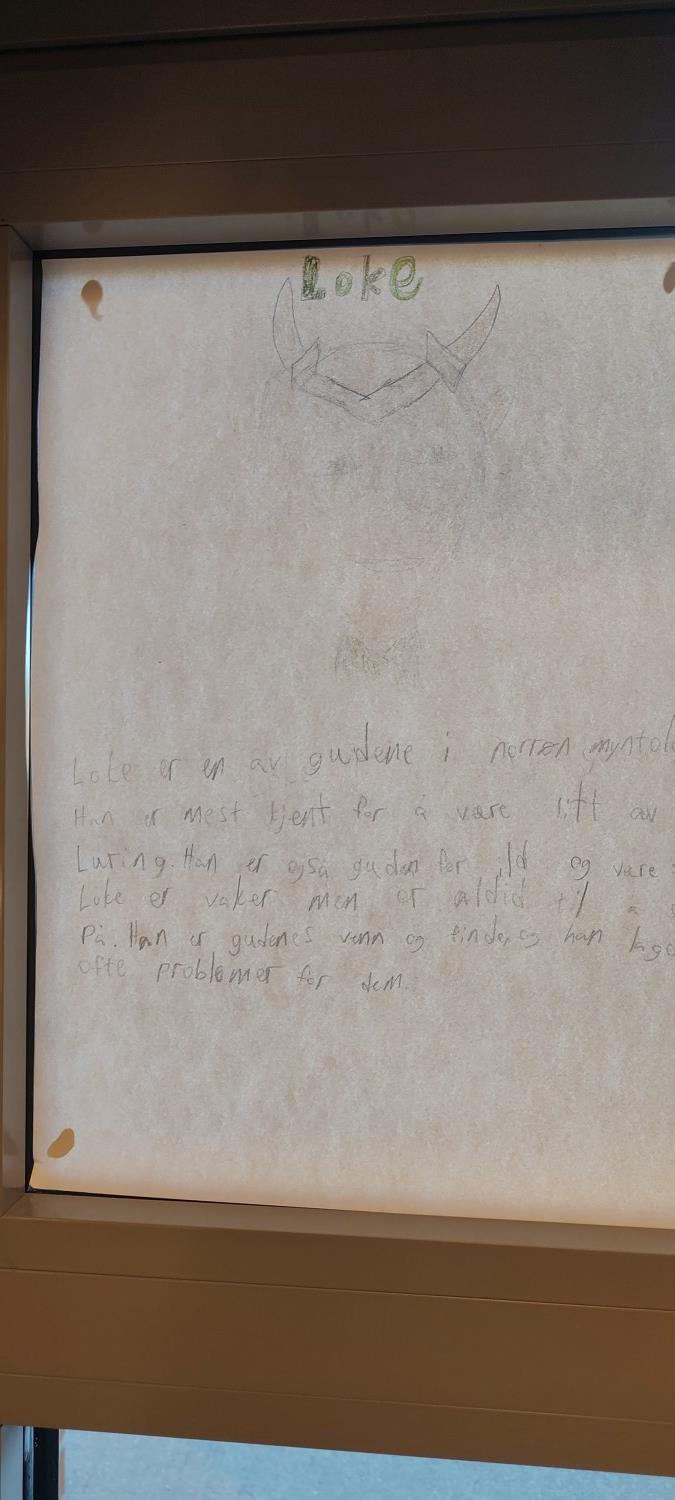 Loke
Loke er en av gudene i nørrøn myntol
Han er mest kjent for å være litt av
Luring. Han er også guden for ild og være
Loke er vaker men er aldid til å
På. Han er gudenes venn og finde, og han lage
ofte problemer for dem.